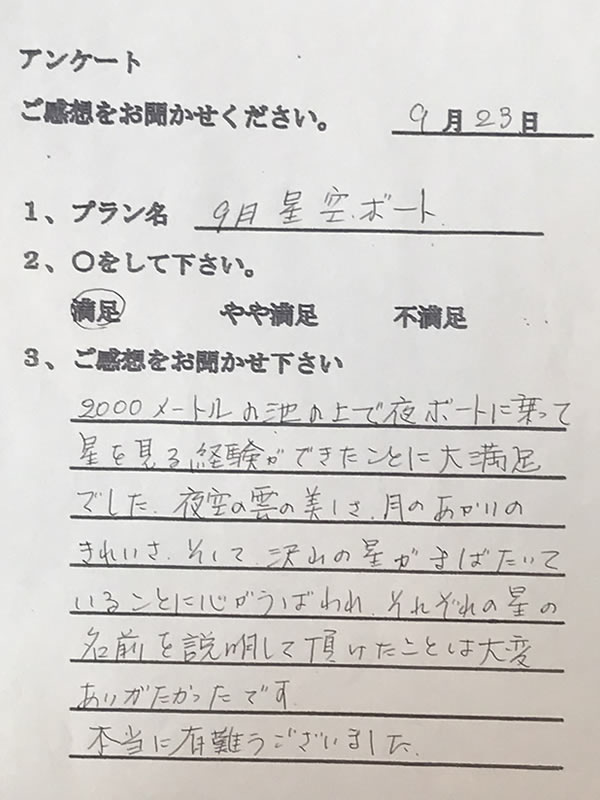 アンケート
ご感想をお聞かせください。 9月23日
1、プラン名 9月星空ボート
2、〇をして下さい。
満足 やや満足 不満足
3、ご感想をお聞かせ下さい
2000メートルの池の上で夜ボートに乗って
星を見る経験ができたことに大満足
でした、夜空の雲の美しさ、月のあかりの
きれいさ、そして、沢山の星がまばたいて
いることに心がうばわれ、それぞれの星の
名前を説明して頂けたことは大変
ありがたかったです
本当に有難うございました、